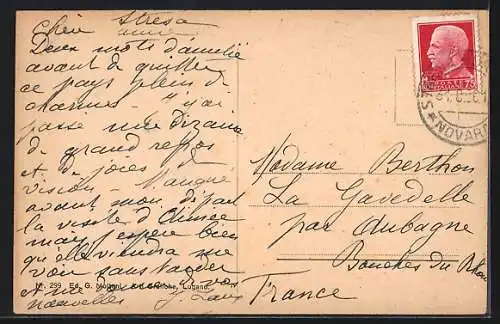 Chère Stresa
amie
Deux mots d'amitié
avant de quitter
ce pays plein de
charmes - j'ai
passé une dizaine
de grand repos
et de joies de
vision - Manqué
avant mon départ
la visite d'Aimée
mais j'espère bien
qu'elle viendra me
voir sans tarder
et me de vos
nouvelles
No. 299 Ed. G. Lugano
Madame Berthon
La Gavodelle
par Aubagne
Bouches du Rhône
France
NOVARA